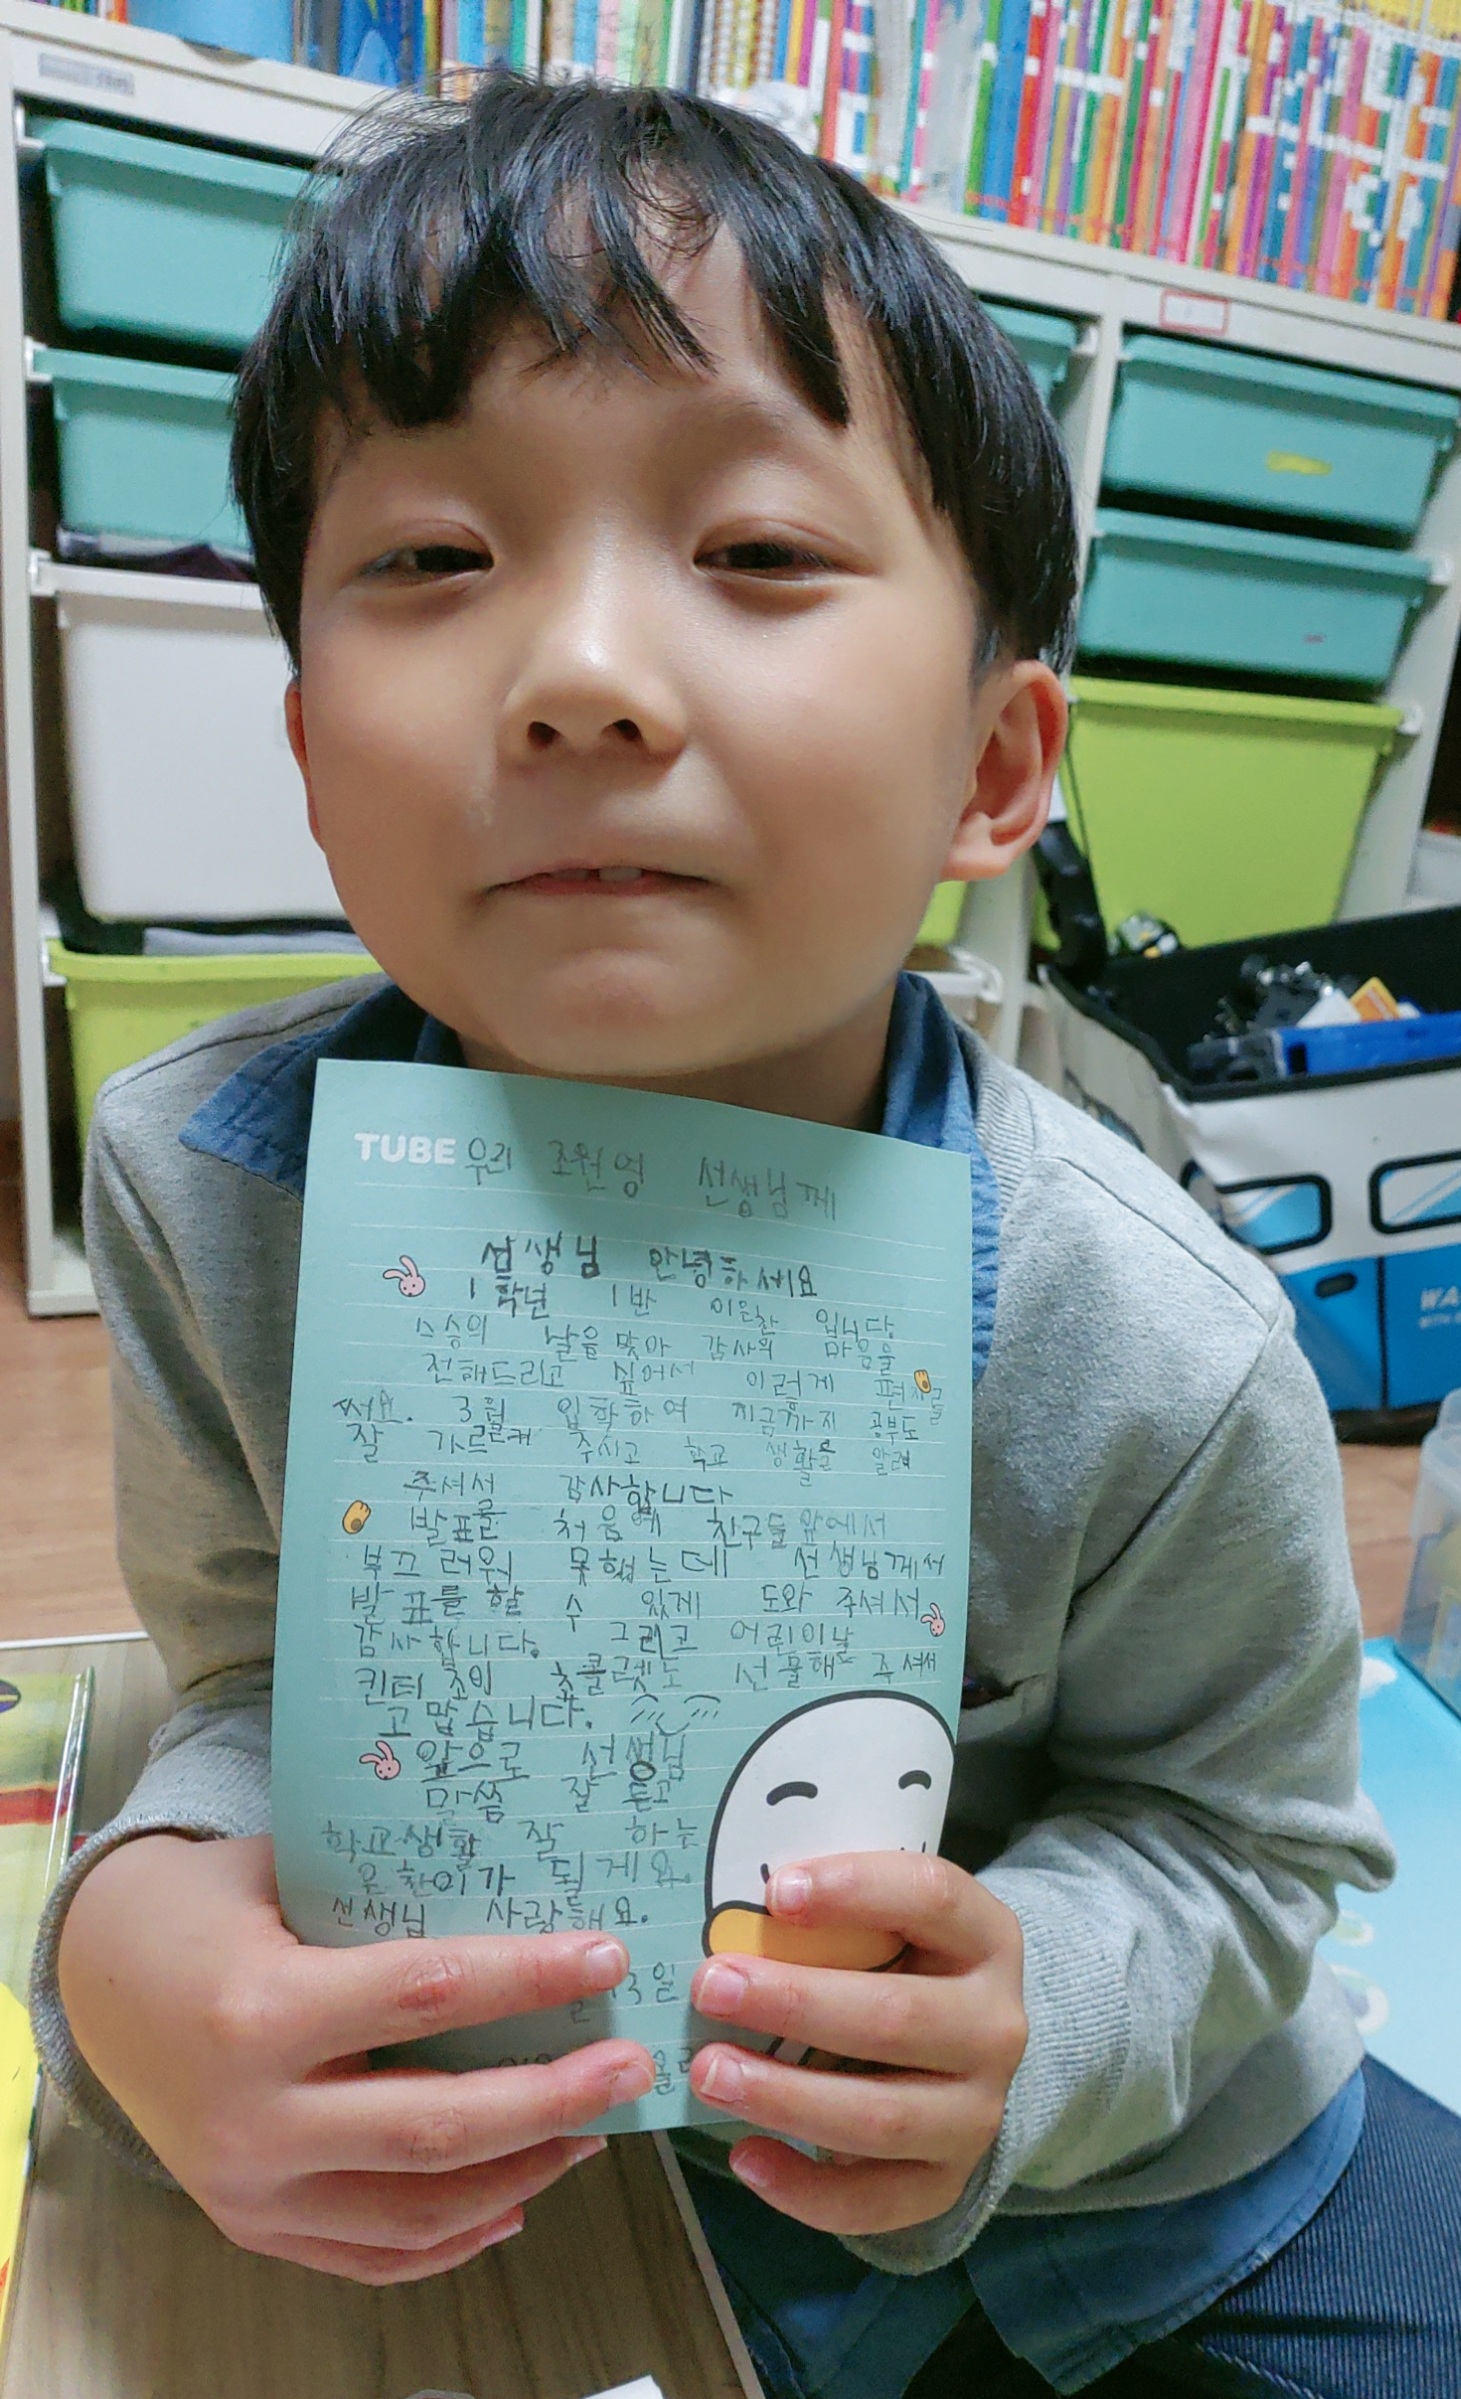 TUBE 우리 조원영 선생님께
선생님 안녕하세요
1학년 1반 이윤찬 입니다.
스승의 날을 맞아 감사의 마음을
전해드리고 싶어서 이렇게 편지를
써요. 3월 입학하여 지금까지 공부도
잘 가르켜 주시고 학교 생활을 알려
주셔서 감사합니다
발표를 처음에 친구들 앞에서
부끄러워 못했는데 선생님께서
발표를 할 수 있게 도와 주셔서
감사합니다. 그리고 어린이날
킨터 초비 초콜렛도 선물해 주셔서
고맙습니다.
앞으로 선생님
말씀 잘 듣고
학교생활 잘 하는
윤찬이가 될게요.
선생님 사랑해요.
13일
올림
WA